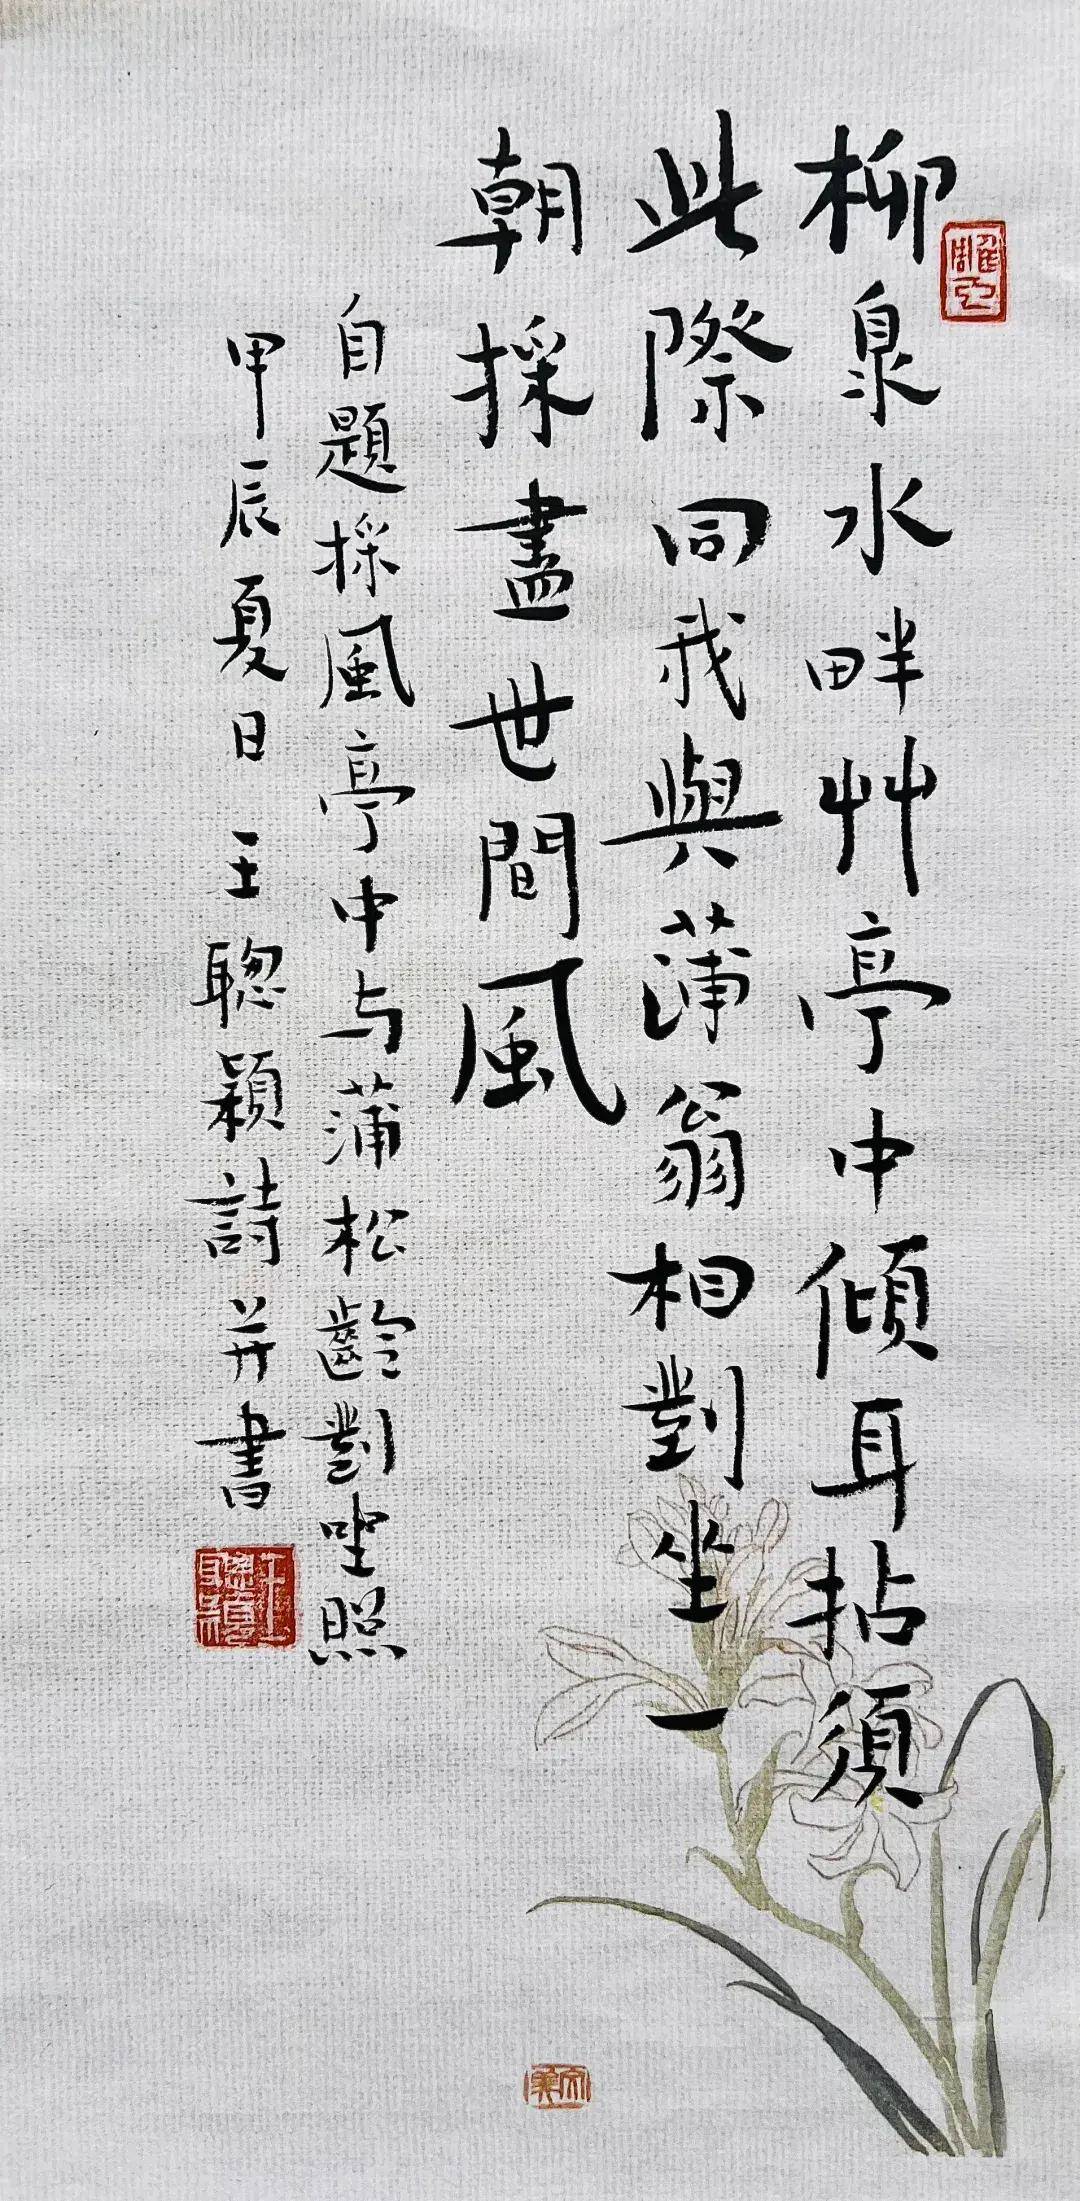 柳泉水畔艸亭中傾耳拈須
此際同我與蒲翁相對坐一
朝採盡世間風
自題採風亭中与蒲松齡對坐照
甲辰夏日王聰穎詩并書
王聰穎